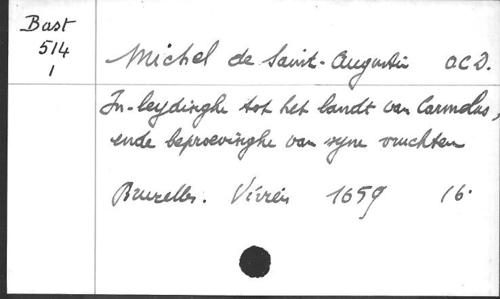 Bast
514
1
Michel de Saint-Augustin OCD.
In-leydinghe tot het landt van Carmelus,
ende beproevinghe van syne vruchten
Bruxelles. Vivien 1659 16°